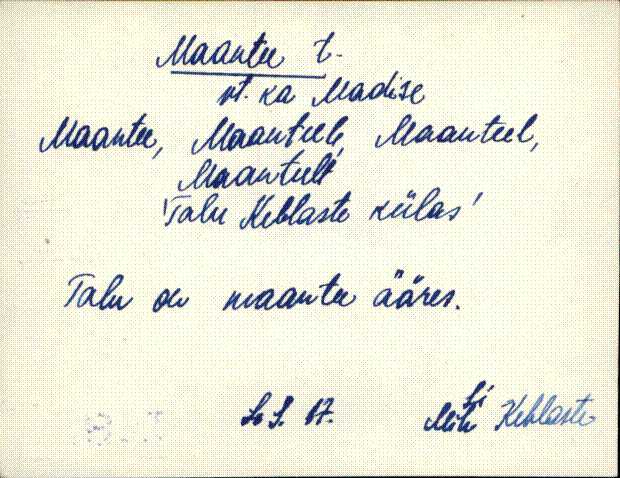 Maantee t.
vt. ka Madise
Maantee, Maanteele, Maanteel,
Maanteelt
'Talu Keblaste külas'
Talu on maantee ääres.
17.
Keblaste